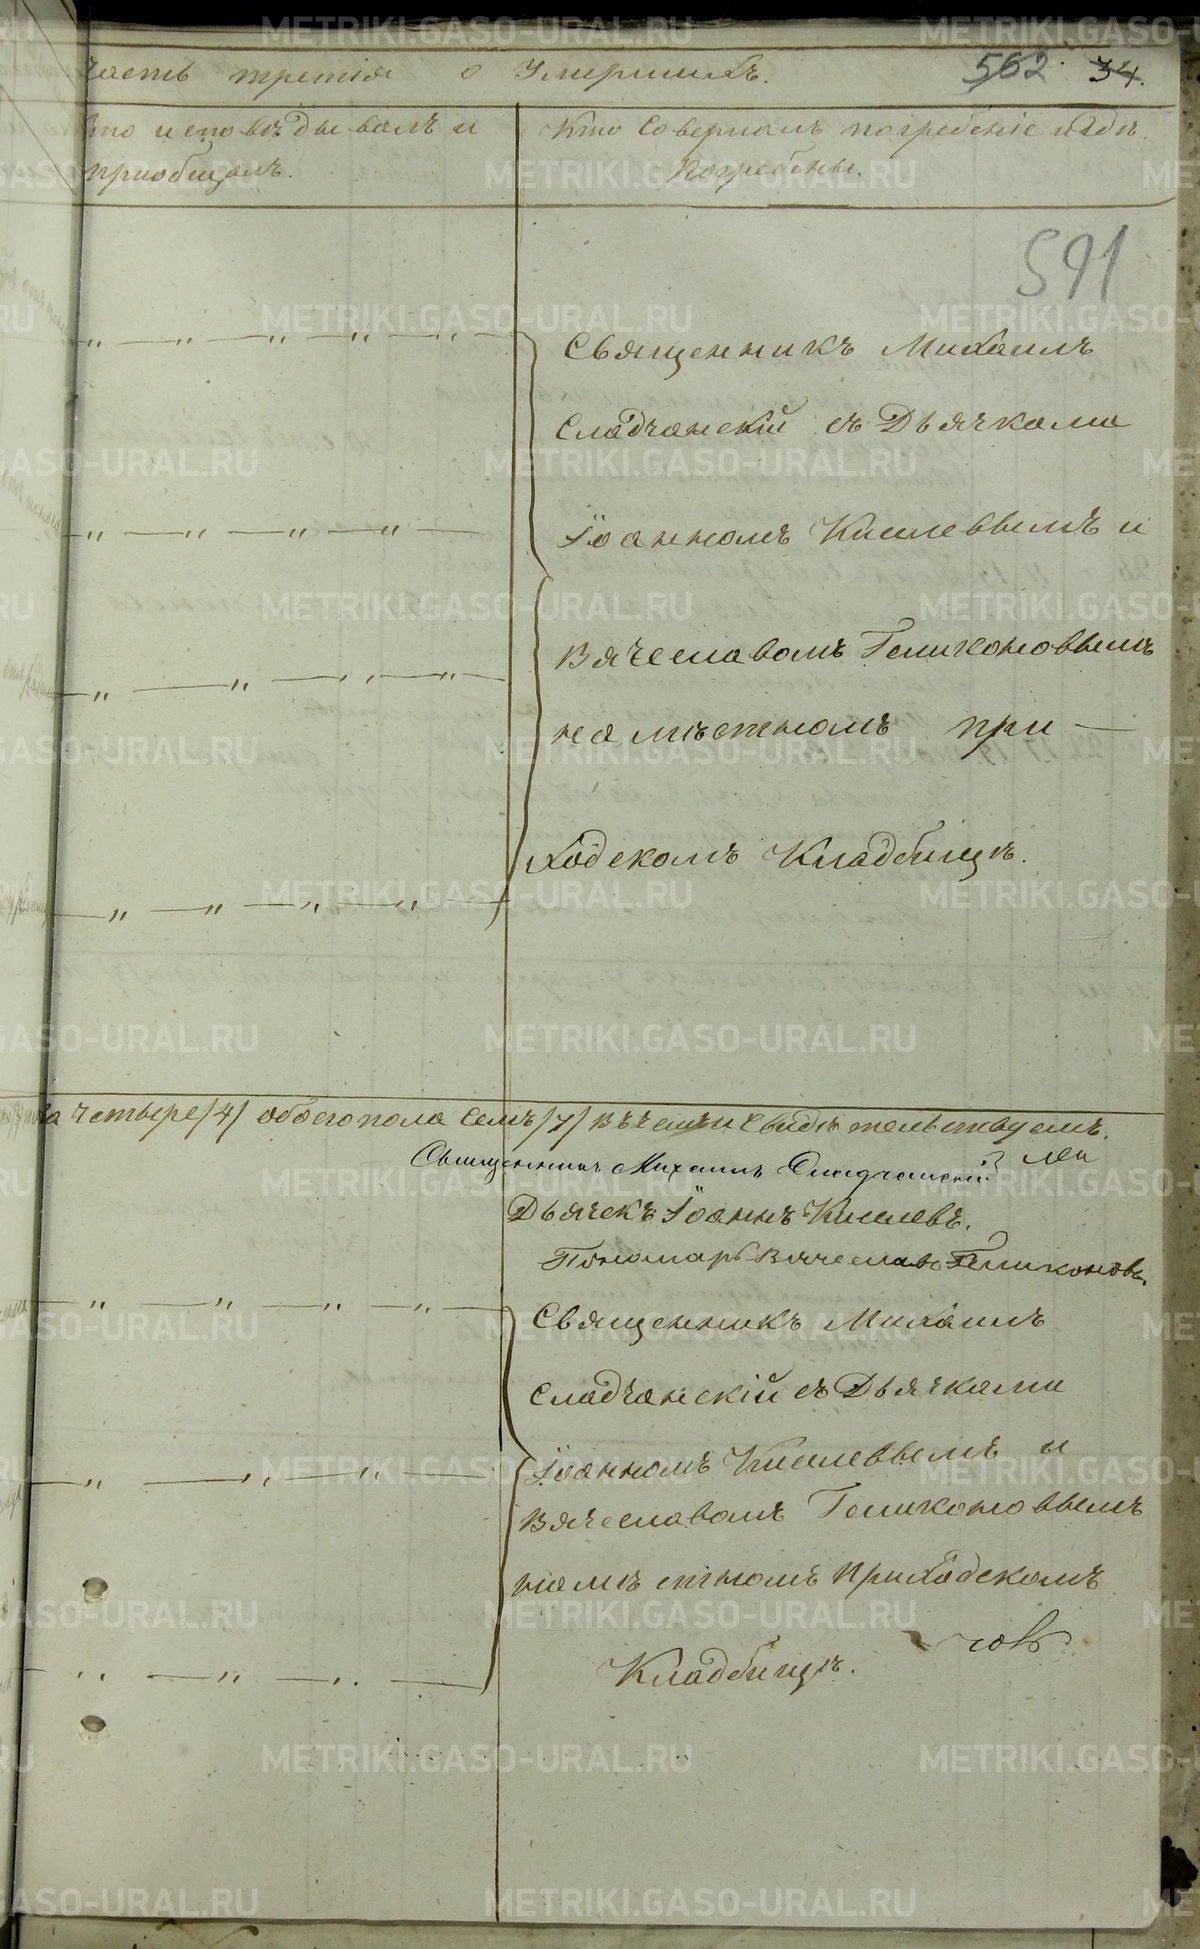 часть третія о Умершихъ. 562 34.
Кто исповѣдывалъ и
приобщалъ.
Кто Совершалъ погребеніе и гдѣ
Погребены.
591
Священникъ Михаилъ
Сладчанскій съ Дьячками
Іоанномъ Киселеввымъ и
Вячеславомъ Геликоновымъ
на мѣстномъ при-
ходскомъ Кладбищѣ.
четыре /4/ обоего пола Семь /7/ въ чемъ и Свидѣтельствуемъ.
Священникъ Михаилъ Сладчанскій
Дьячекъ Іоаннъ Киселевъ.
Пономарь Вячеславъ Геликоновъ.
Священникъ Михаилъ
Сладчанскій съ Дьячками
Іоанномъ Киселеввымъ и
Вячеславомъ Геликоноввымъ
на мѣстномъ приходскомъ
Кладбищѣ.
METRIKI.GASO-URAL.RU